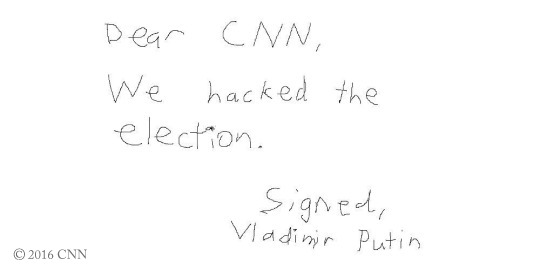 Dear CNN,
We hacked the
election.
Signed,
Vladimir Putin
© 2016 CNN